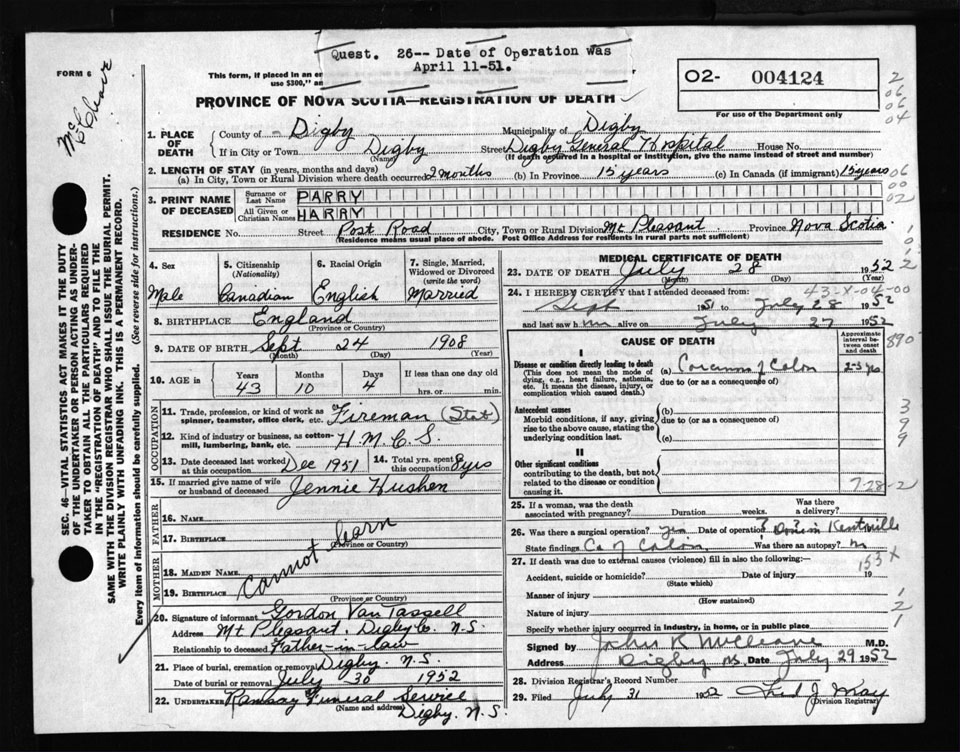 Quest. 26-- Date of Operation was
April 11-51.
FORM 6
McCleave
This form, if placed in an en
use $300," an
O2- 004124
For use of the Department only
PROVINCE OF NOVA SCOTIA—REGISTRATION OF DEATH
1. PLACE OF DEATH
County of - Digby Municipality of Digby
If in City or Town Digby (Name) Street Digby General Hospital House No.
(If death occurred in a hospital or institution, give the name instead of street and number)
2. LENGTH OF STAY (in years, months and days)
(a) In City, Town or Rural Division where death occurred 2 months (b) In Province 15 years (c) In Canada (if immigrant) 15 years
3. PRINT NAME OF DECEASED
Surname or Last Name PARRY
All Given or Christian Names HARRY
RESIDENCE No. Street Post Road City, Town or Rural Division Mt Pleasant Province Nova Scotia
(Residence means usual place of abode. Post Office Address for residents in rural parts not sufficient)
4. Sex Male
5. Citizenship (Nationality) Canadian
6. Racial Origin English
7. Single, Married, Widowed or Divorced (write the word) Married
8. BIRTHPLACE England
(Province or Country)
9. DATE OF BIRTH Sept 24 1908
(Month) (Day) (Year)
10. AGE in Years 43 Months 10 Days 4 If less than one day old hrs. or min.
OCCUPATION
11. Trade, profession, or kind of work as spinner, teamster, office clerk, etc. Fireman (Stat)
12. Kind of industry or business, as cotton-mill, lumbering, bank, etc. H.M.C.S.
13. Date deceased last worked at this occupation Dec 1951
14. Total yrs. spent in this occupation 8 yrs
15. If married give name of wife or husband of deceased Jennie Hushen
FATHER
16. NAME
17. BIRTHPLACE
(Province or Country)
MOTHER
18. MAIDEN NAME
19. BIRTHPLACE
(Province or Country)
Cannot learn
20. Signature of informant Gordon Van Tassell
Address Mt Pleasant, Digby Co. N.S.
Relationship to deceased Father-in-law
21. Place of burial, cremation or removal Digby. N.S.
Date of burial or removal July 30 1952
22. UNDERTAKER Ramsay Funeral Service
(Name and address) Digby. N.S.
MEDICAL CERTIFICATE OF DEATH
23. DATE OF DEATH July 28 1952
(Month) (Day) (Year)
24. I HEREBY CERTIFY that I attended deceased from: 43-X-04-00
Sept 1951 to July 28 1952
and last saw him alive on July 27 1952
CAUSE OF DEATH
Approximate interval between onset and death
I
Disease or condition directly leading to death
(This does not mean the mode of dying, e.g., heart failure, asthenia, etc. It means the disease, injury, or complication which caused death.)
(a) Carcinoma of Colon
due to (or as a consequence of)
Antecedent causes
Morbid conditions, if any, giving rise to the above cause, stating the underlying condition last.
(b)
due to (or as a consequence of)
(c)
II
Other significant conditions
contributing to the death, but not related to the disease or condition causing it.
7-28-2
25. If a woman, was the death associated with pregnancy? Duration weeks. Was there a delivery?
26. Was there a surgical operation? yes Date of operation ? Done in Kentville
State findings Ca of Colon Was there an autopsy? no
27. If death was due to external causes (violence) fill in also the following:—
153 X
Accident, suicide or homicide? Date of injury 19
(State which)
Manner of injury
(How sustained)
Nature of injury
Specify whether injury occurred in industry, in home, or in public place
Signed by John R McCleave M.D.
Address Digby NS. Date July 29 1952
28. Division Registrar's Record Number
29. Filed July 31 1952 Fred J May
(Division Registrar)
SEC. 46—VITAL STATISTICS ACT MAKES IT THE DUTY
OF THE UNDERTAKER OR PERSON ACTING AS UNDER-
TAKER TO OBTAIN ALL THE PARTICULARS REQUIRED
IN THE "REGISTRATION OF DEATH" AND TO FILE THE
SAME WITH THE DIVISION REGISTRAR WHO SHALL ISSUE THE BURIAL PERMIT.
WRITE PLAINLY WITH UNFADING INK. THIS IS A PERMANENT RECORD.
Every item of information should be carefully supplied. (See reverse side for instructions.)
2
06
06
04
06
00
02
890
399